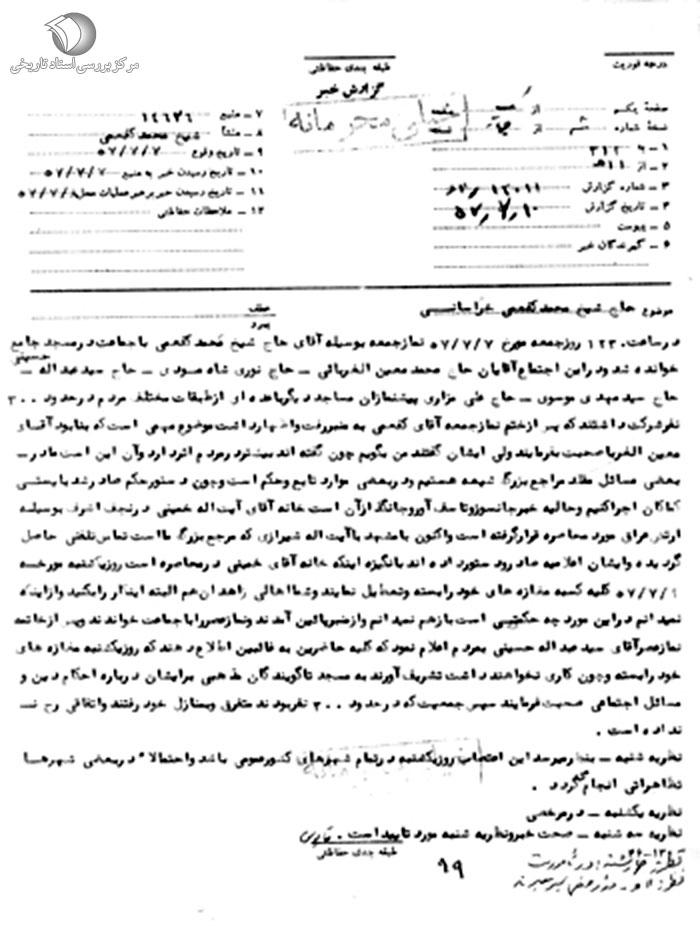 مرکز بررسی اسناد تاریخی
درجه فوریت
طبقه بندی حفاظتی
گزارش خبر
خیلی محرمانه
صفحه یکم از
نسخه شماره از
۱ ـ به ۳۱۲
۲ ـ از ۱۱ﻫ
۳ ـ شماره گزارش
۴ ـ تاریخ گزارش
۵ ـ پیوست
۶ ـ گیرندگان خبر
۷ ـ منبع
۸ ـ منشأ شیخ محمد کفعمی
۹ ـ تاریخ وقوع ۵۷/۷/۷
۱۰ ـ تاریخ رسیدن خبر به منبع ۵۷/۷/۷
۱۱ ـ تاریخ رسیدن خبر برهبر عملیات محل ۵۷/۷/۸
۱۲ ـ ملاحظات حفاظتی
موضوع حاج شیخ محمد کفعمی خراسانی
عطف
پیرو
در ساعت روز جمعه مورخ ۵۷/۷/۷ نماز جمعه بوسیله آقای حاج شیخ محمد کفعمی با جماعت در مسجد جامع
خوانده شد و در این اجتماع آقایان حاج محمد معین الغربائی ـ حاج نوری شاه ـ حاج سید عبداله حسینی ـ
حاج سید مهدی موسوی ـ حاج علی مزاری پیشنمازان مساجد دیگر باعده ای از طبقات مختلف مردم در حدود ۳۰۰
نفر شرکت داشتند که پس از ختم نماز جمعه آقای کفعمی به منبر رفت و اظهار داشت موضوع مهمی است که بنا بود آقای
معین الغربا صحبت بفرمایند ولی ایشان گفتند من بگویم چون گفته اند بیشتر در مردم اثر دارد و آن این است ما در ـ
بعضی مسائل مقلد مراجع بزرگ شیعه هستیم و در بعضی موارد تابع و حکم است و چون دستور حکم صادر شد بایستی
کماکان اجرا کنیم و حالیه خبر جانسوز و تاسف آور و جانگداز آن است خانه آقای آیت اله خمینی در نجف اشرف بوسیله
ارتش عراق مورد محاصره قرار گرفته است و اکنون با مشهد با آیت اله شیرازی که مرجع بزرگ ما است تماس تلفنی حاصل
گردیده و ایشان اعلامیه صادر و دستور داده اند بانگیزه اینکه خانه آقای خمینی در محاصره است روز یکشنبه مورخه
۵۷/۷/۹ کلیه کسبه مغازه های خود را بسته و تعطیل نمایند و شما اهالی زاهدان هم البته اینکار را بکنید و از اینکه
نمیدانم در این مورد چه حکمتی است باز هم نمیدانم و از منبر پائین آمدند و نماز عصر را با جماعت خواندند و پس از خاتمه
نماز عصر آقای سید عبداله حسینی بمردم اعلام نمود که کلیه حاضرین به غائبین اطلاع دهند که روز یکشنبه مغازه های
خود را بسته و چون کاری نخواهند داشت تشریف آورند به مسجد تا گویندگان مذهبی برایشان درباره احکام دین و
مسائل اجتماعی صحبت فرمایند سپس جمعیت که در حدود ۳۰۰ نفر بودند متفرق و بمنازل خود رفتند و اتفاقی رخ نـ
نداده است .
نظریه شنبه ـ بنظر میرسد این اعتصاب روز یکشنبه در تمام شهرهای کشور عمومی باشد و احتمالا" در بعضی شهرها
تظاهراتی انجام گردد .
نظریه یکشنبه ـ در مرخصی
نظریه سه شنبه ـ صحت خبر و نظریه شنبه مورد تایید است .
طبقه بندی حفاظتی
۱۹